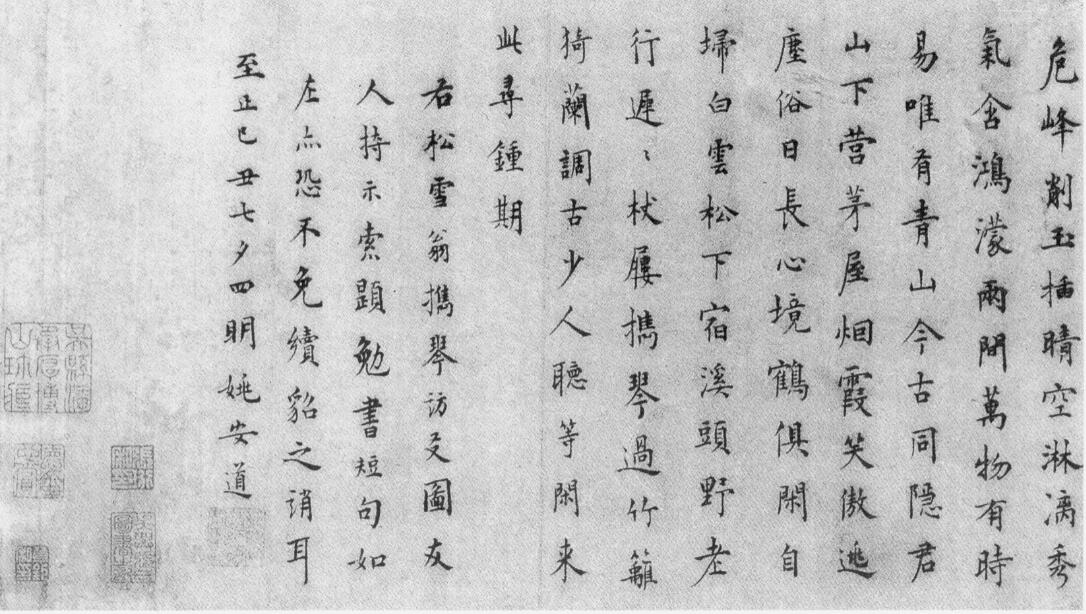 危峰削玉插晴空淋漓秀
氣含鴻濛兩間萬物有時
易唯有青山今古同隱君
山下营茅屋烟霞笑傲逃
塵俗日長心境鶴俱閑自
埽白雲松下宿溪頭野老
行遲〻杖屨㩦琴過竹籬
猗蘭調古少人聽等閑来
此尋鍾期
右松雪翁㩦琴訪友圖友
人持示索題勉書短句如
左亦恐不免續貂之誚耳
至正己丑七夕四明姚安道